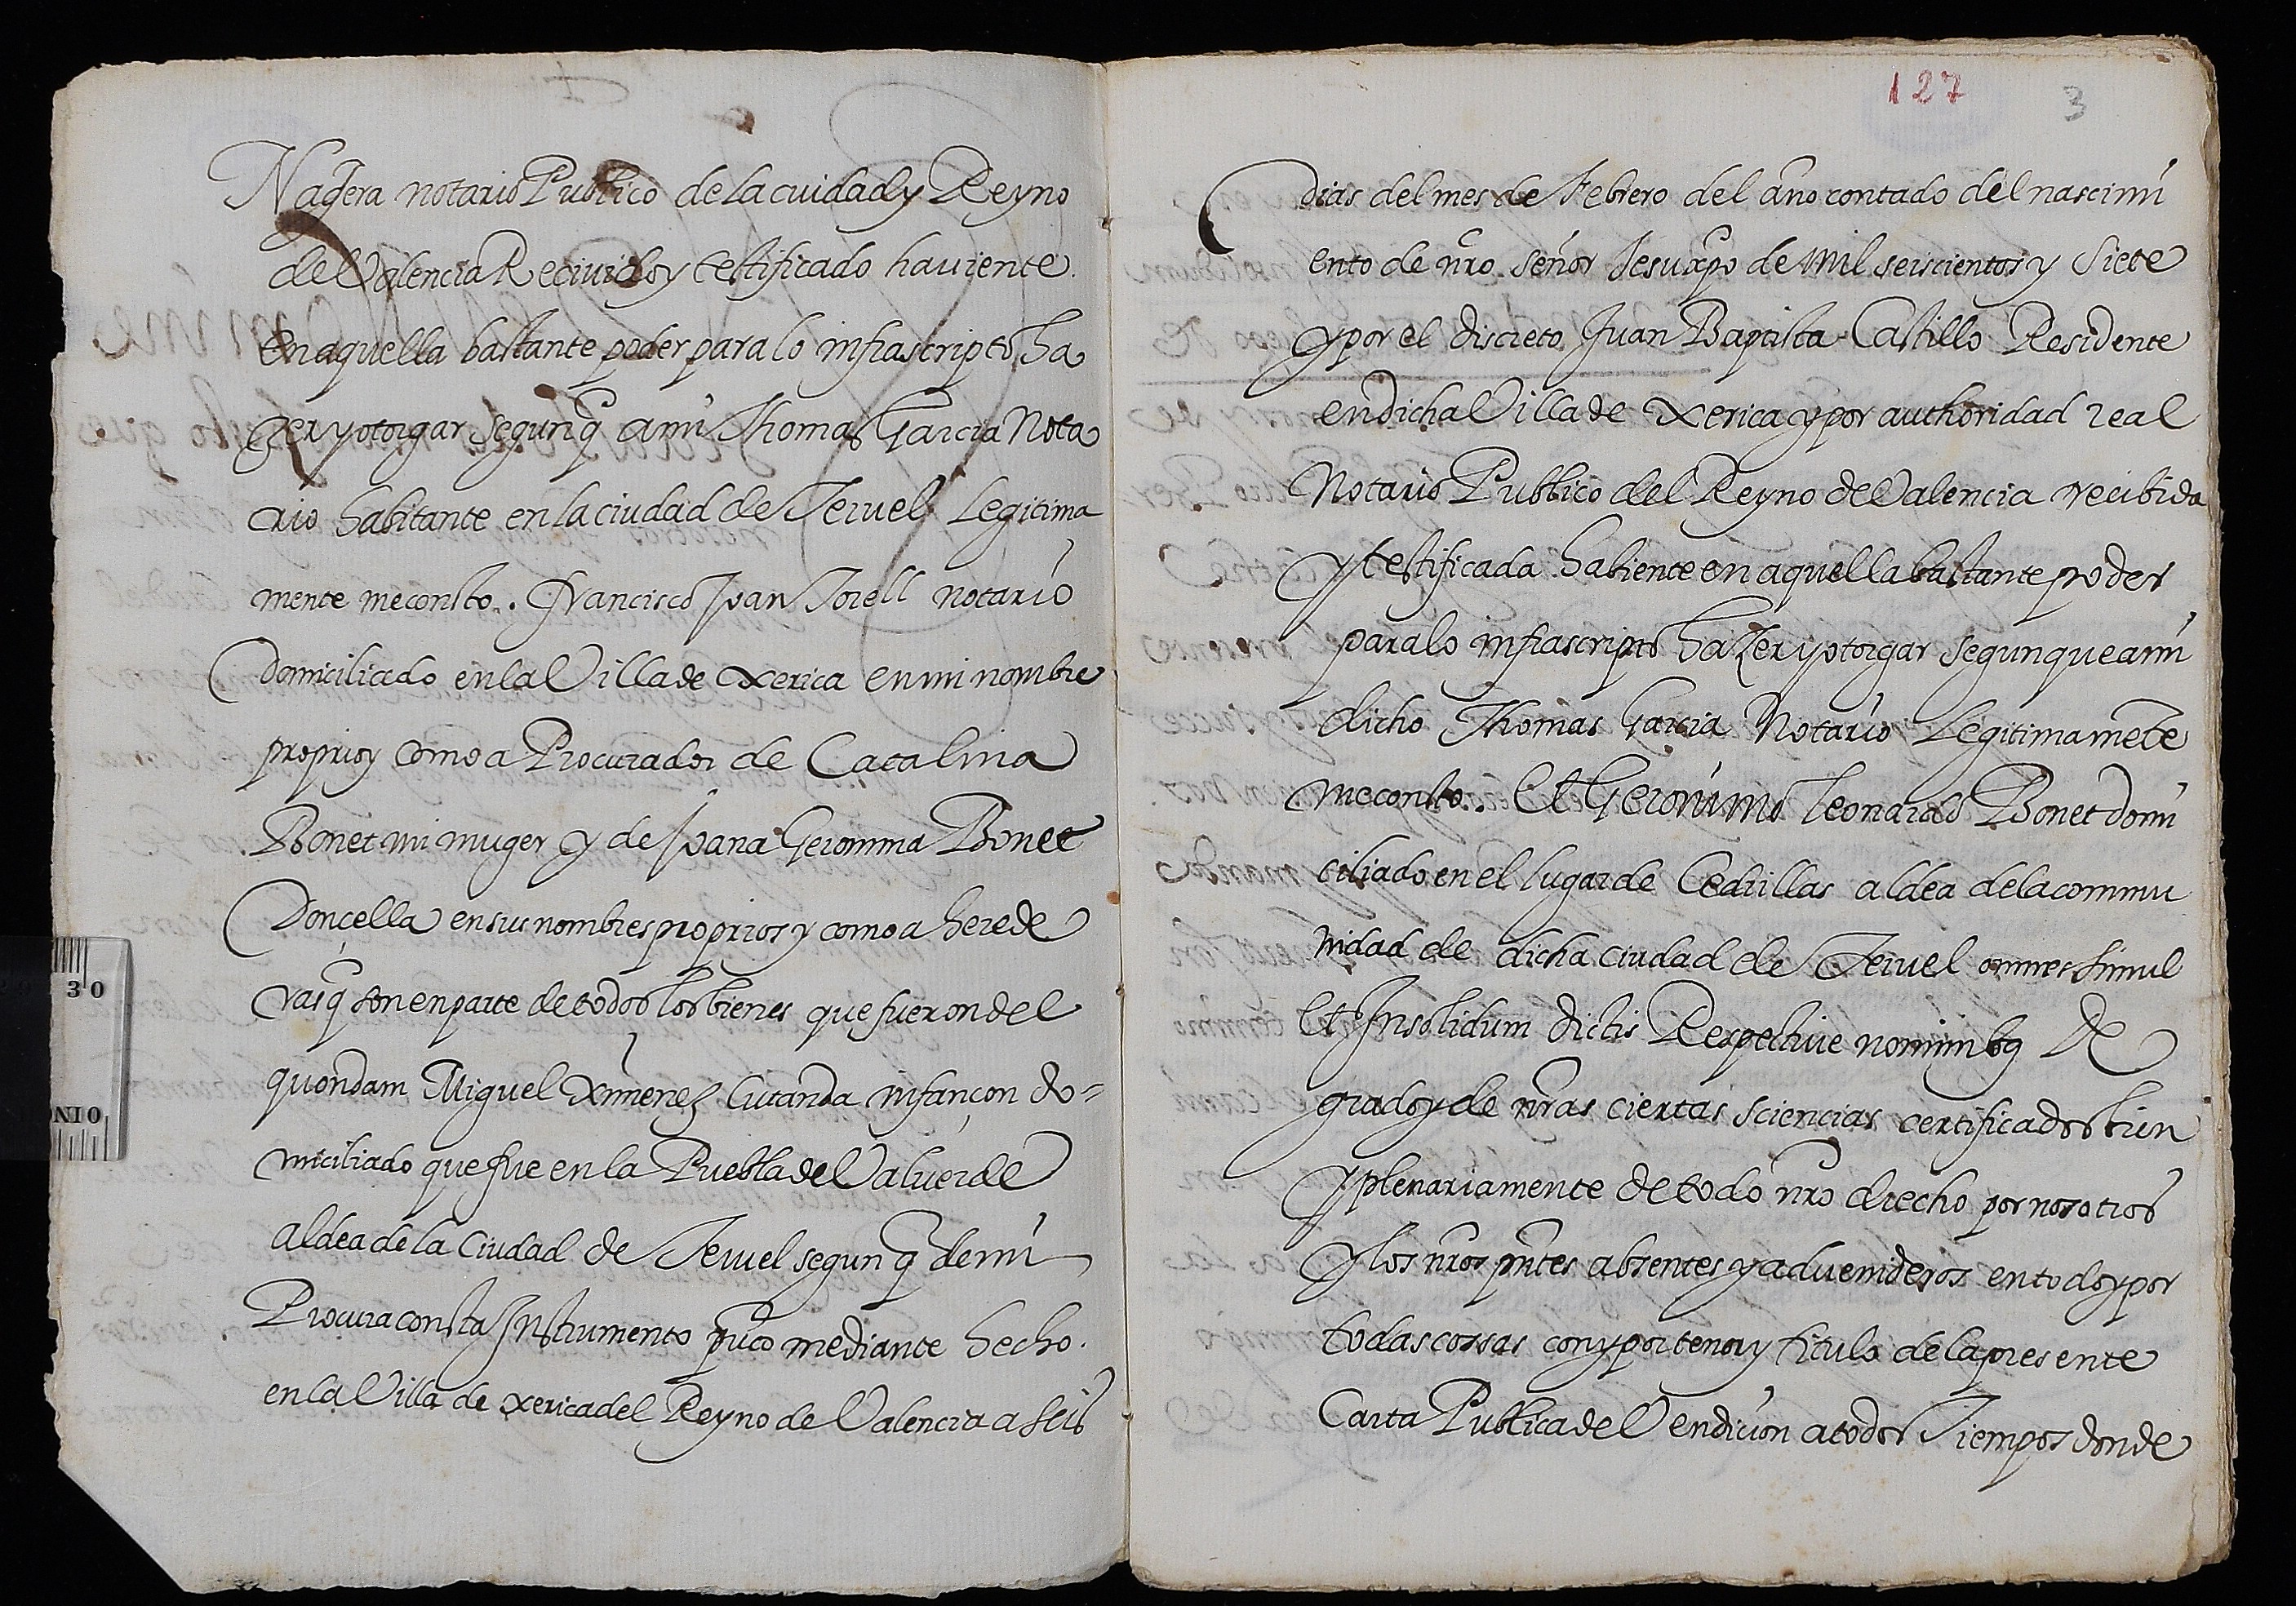 Nagera notario Publico de la cuidad y Reyno
de Valencia Recivido y testificado haviente
en aquella bastante poder para lo infrascripto ha
zer y otorgar segun q̃ a mi Thomas Garcia Nota
rio habitante en la ciudad de Teruel Legitima
mente me consto. Francisco Joan Torell notario
Domiciliado en la Villa de Xerica en mi nombre
proprio y como a Procurador de Catalina
Bonet mi muger y de Joana Geronima Bonet
Doncella en sus nombres proprios y como a herede
ras q̃ son en parte de todos los bienes que fueron del
quondam Miguel Ximenez Cutanda infançon do=
miciliado que fue en la Puebla de Valverde
aldea de la Ciudad de Teruel segun q̃ de mi
Procura consta Instrumento puco mediante hecho.
en la Villa de Xerica del Reyno de Valencia a seis
127 3
dias del mes de Febrero del año contado del nascimi
ento de nro. Señor Jesuxpo de Mil seiscientos y Siete
y por el discreto Juan Baptista Castillo Residente
en dicha Villa de Xerica y por authoridad real
Notario Publico del Reyno de Valencia recibida
y testificada habiente en aquella bastante poder
para lo infrascripto hazer y otorgar segun que a mi
dicho Thomas Garcia Notario Legitimamẽte
me consto. Et Geronimo Leonardo Bonet domi
ciliado en el lugar de Cedrillas aldea de la commu
nidad de dicha ciudad de Teruel omnes simul
Et Insolidum dictis Respective nominibꝰ De
grado y de nras ciertas sciencias certificados bien
y plenariamente de todo nro drecho por nosotros
y los nros pntes absentes y advenideros en todo y por
todas cossas con y por tenor y titulo de la presente
Carta Publica de Vendicion a todos Tiempos donde
30